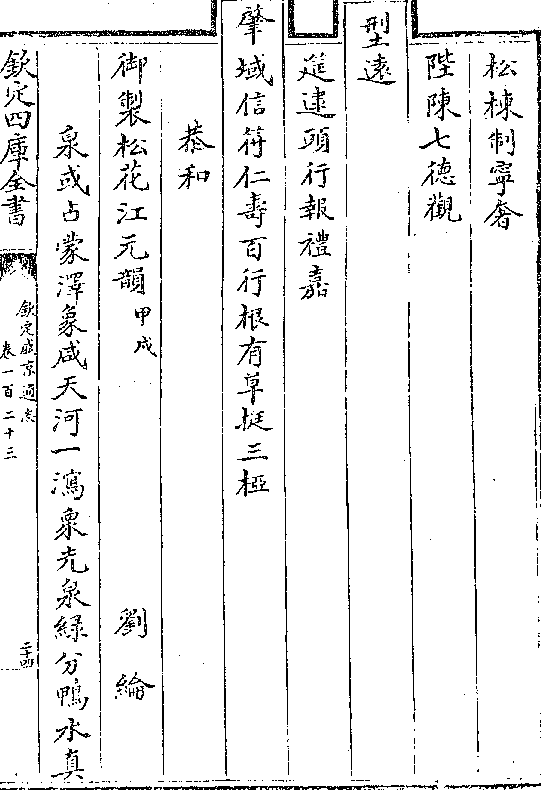 松棟制寧奢
陛陳七德觀
型遠
筵逮頭行報禮嘉
肇域信符仁壽百行根有草挺三椏
恭和
御製松花江元韻甲戌　劉綸
泉或占蒙澤象咸天河一瀉衆先泉緑分鴨水真
欽定四庫全書
欽定盛京通志
卷一百二十三
二十四